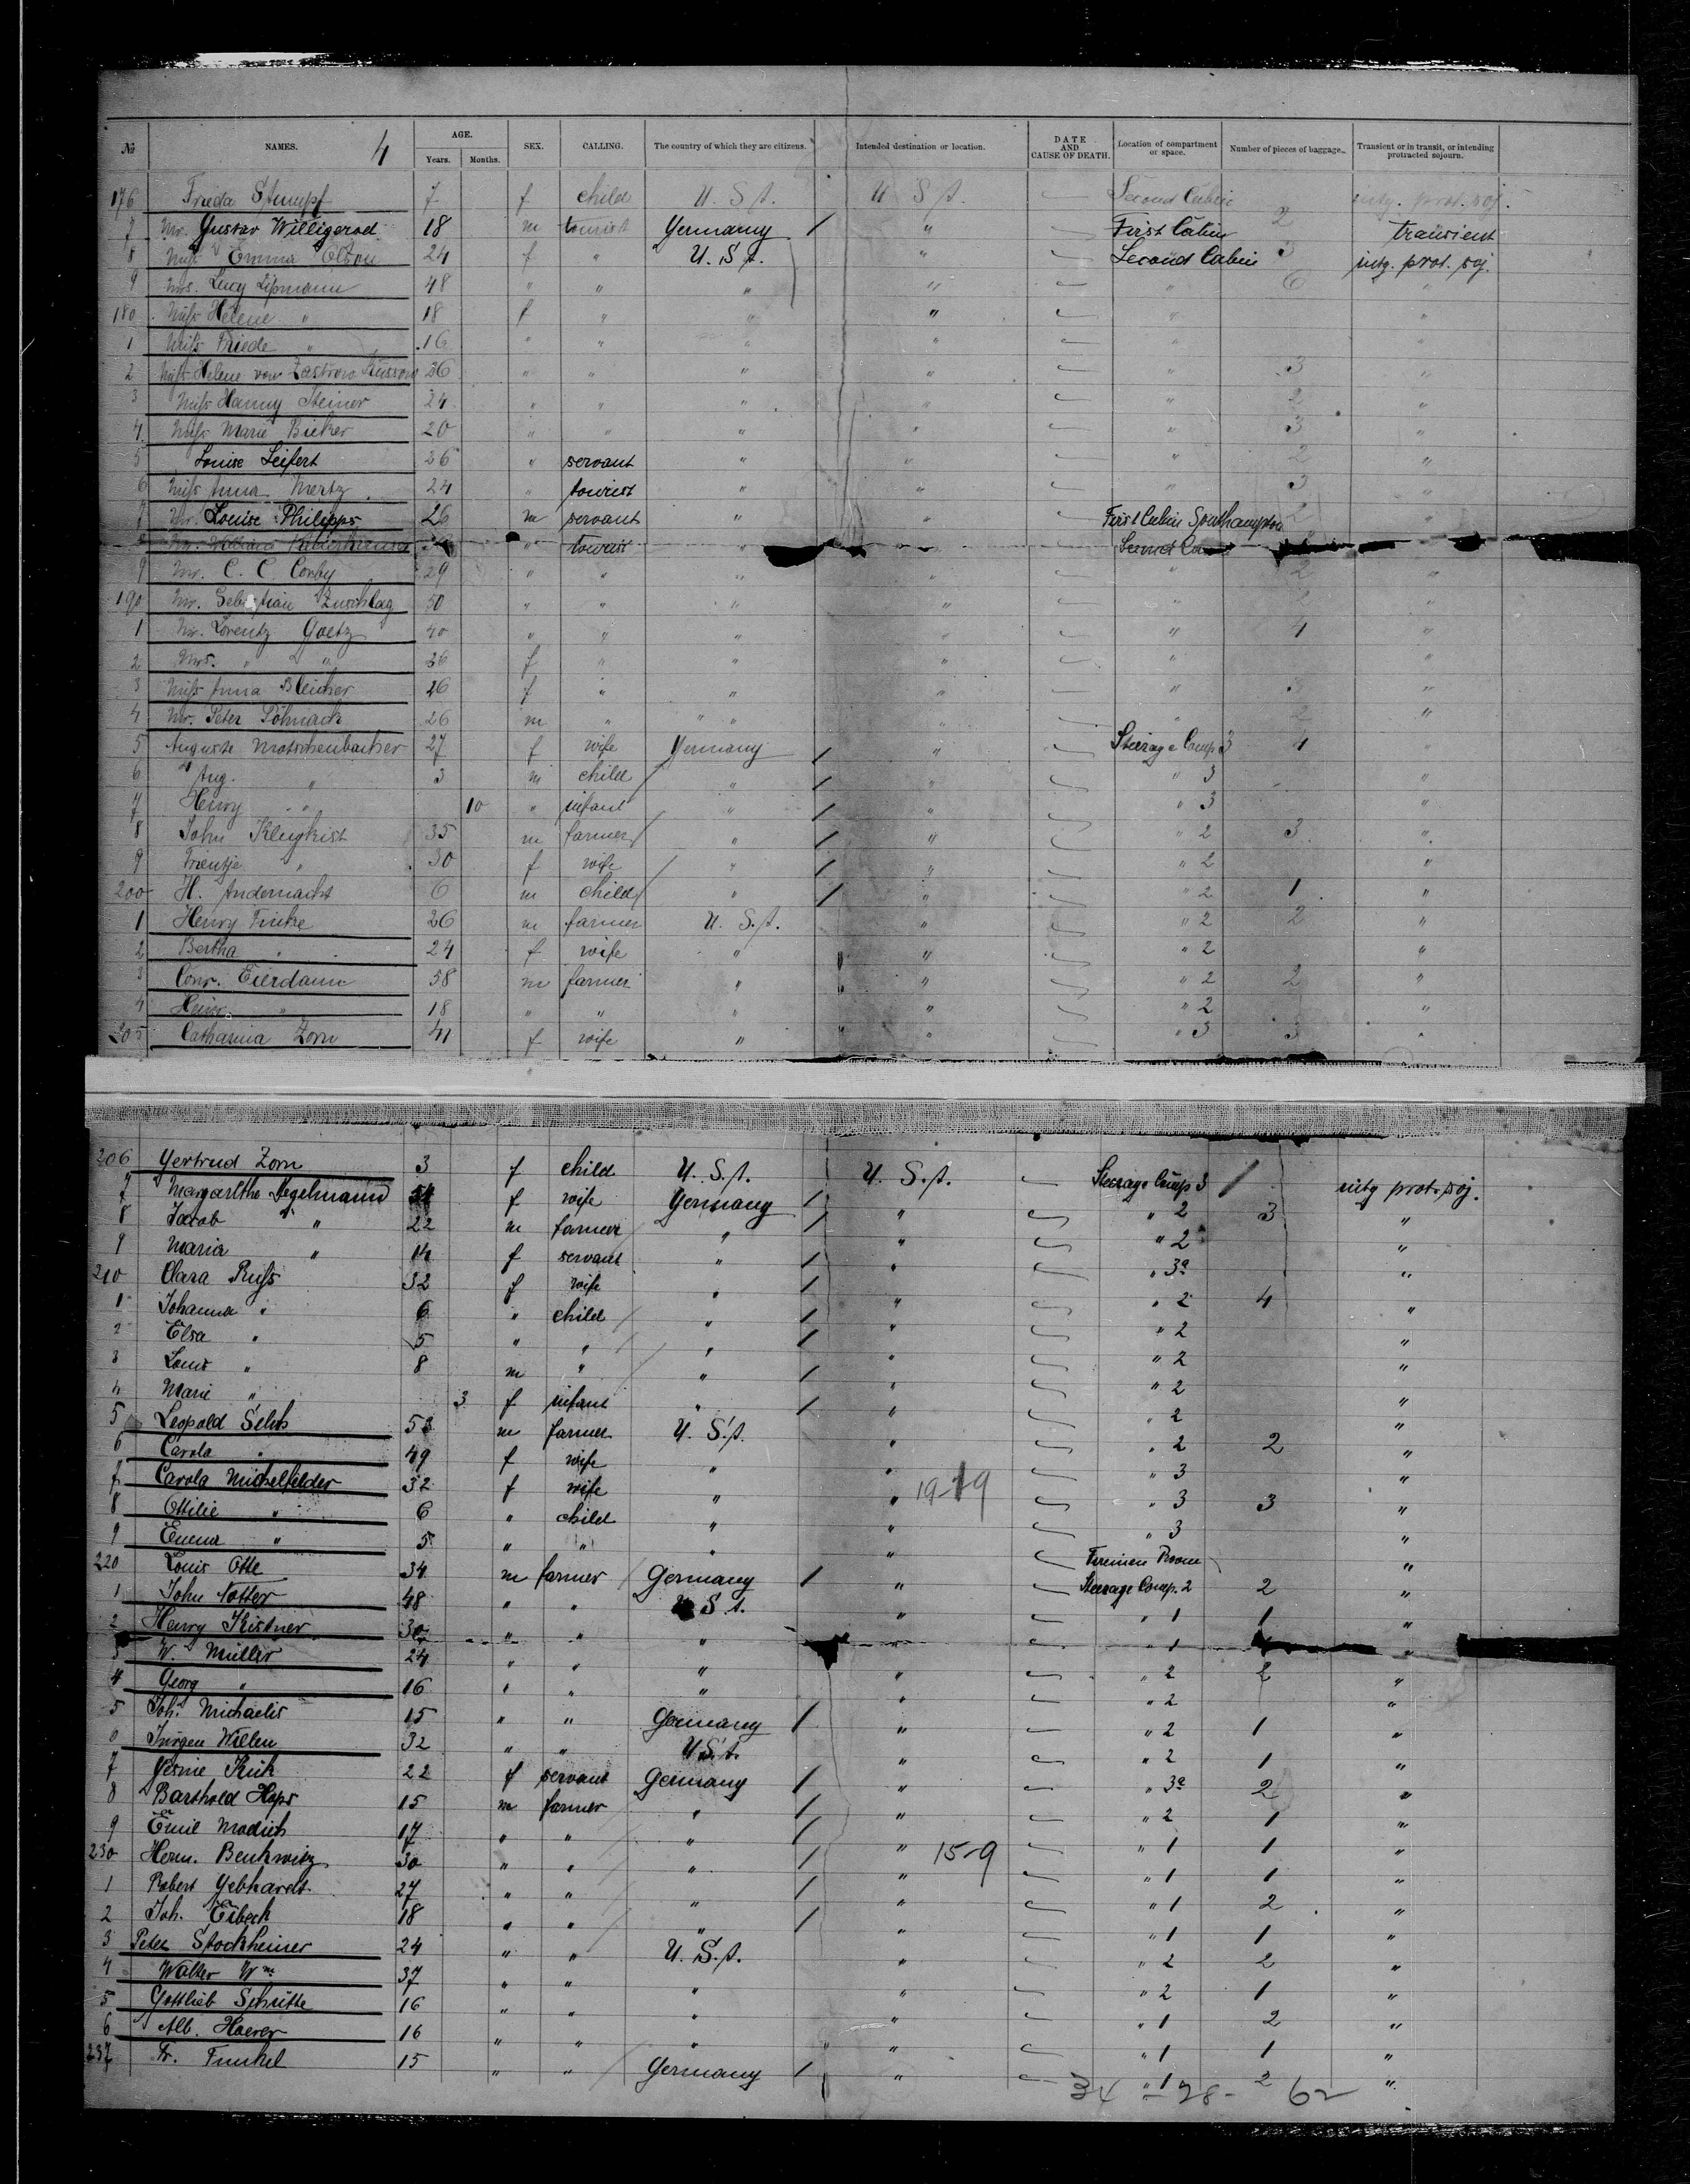 4
№ NAMES. AGE. Years. Months. SEX. CALLING. The country of which they are citizens. Intended destination or location. DATE AND CAUSE OF DEATH. Location of compartment or space. Number of pieces of baggage. Transient or in transit, or intending protracted sojourn.
176 Frieda Stumpf 7 f child U. S. A. U S A. Second Cabin intg. prot. soj.
7 Mr. Gustav Willigerod 18 m tourist Germany / " First Cabin 2 transient
8 Miss Emma Olson 24 f " U. S. A. " Second Cabin 3 intg. prot. soj.
9 Mrs. Lucy Lipmann 48 " " " " " 6 "
180 Miss Helene " 18 f " " " " "
1 Miss Friede " 16 " " " " " "
2 Miss Helene von Zastrow Küssow 36 " " " " " 3 "
3 Miss Hanny Steiner 24 " " " " " 2 "
4 Miss Marie Bieker 20 " " " " " 3 "
5 Louise Leifert 26 " servant " " " 2 "
6 Miss Anna Mertz 24 " tourist " " " 3 "
7 Mr. Louise Philipps 26 m servant " " First Cabin Southampton 2 "
Mr. William " tourist " Second
9 Mr. C. C. Conby 29 " " " " " 2 "
190 Mr. Sebastian Zuschlag 50 " " " " " 2 "
1 Mr. Lorentz Goetz 40 " " " " " 4 "
2 Mrs. " " 36 f " " " " "
3 Miss Anna Bleicher 26 f " " " " 3 "
4 Mr. Peter Pöhnack 26 m " " " " " 2 "
5 Auguste Motschenbacher 27 f wife Germany / " Steerage Comp 3 4 "
6 Aug. " 3 m child " / " " 3 "
7 Henry " 10 " infant " / " " 3 "
8 John Klugkist 35 m farmer " / " " 2 3 "
9 Trientje " 30 f wife " / " " 2 "
200 H. Andernacht 6 m child " / " " 2 1 "
1 Henry Fricke 26 m farmer U. S. A. " " 2 2 "
2 Bertha " 24 f wife " " " 2 "
3 Conr. Eierdann 58 m farmer " " " 2 2 "
4 Heinr. " 18 " " " " " 2 "
205 Catharina Zorn 41 f wife " " " 3 3 "
206 Gertrud Zorn 3 f child U. S. A. U. S. A. Steerage Comp 3 / intg prot. soj.
7 Margarethe Segelmann 54 f wife Germany / " " 2 3 "
8 Jacob " 22 m farmer " / " " 2 "
9 Maria " 14 f servant " / " " 3a "
210 Clara Russ 32 f wife " / " " 2 4 "
1 Johanna " 6 " child " / " " 2 "
2 Elsa " 5 " " " / " " 2 "
3 Louis " 8 m " " / " " 2 "
4 Marie " 3 f infant " / " " 2 "
5 Leopold Selks 53 m farmer U. S. A. " " 2 "
6 Carola " 49 f wife " " " 3 2 "
7 Carola Michelfelder 32 f wife " " 19-19 " 3 3 "
8 Ottilie " 6 " child " " " 3 "
9 Emma " 5 " " " " Firemen Room "
220 Louis Otte 34 m farmer Germany / " Steerage Comp. 2 2 "
1 John Notter 48 " " U S. A. " " 1 1 "
2 Henry Kistner 30 " " " " 1
3 W. Müller 24 " " " " " 2 2 "
4 Georg " 16 " " " " " 2 "
5 Joh. Michaelis 15 " " Germany / " " 2 1 "
6 Jürgen Willen 32 " " U. S. A. " " 2 1 "
7 Gesine Kük 22 f servant Germany / " " 3a 2 "
8 Barthold Hops 15 m farmer " / " " 2 1 "
9 Emil Modich 17 " " " / " " 1 1 "
230 Herm. Benkwitz 30 " " " / " 15-9 " 1 1 "
1 Robert Gebhardt 27 " " " / " " 1 2 "
2 Joh. Eibeck 18 " " " / " " 1 1 "
3 Peter Stockheimer 24 " " U. S. A. " " 2 2 "
4 Walter Wm. 37 " " " " " 2 1 "
5 Gottlieb Schütte 16 " " " " " 1 2 "
6 Alb. Hoerer 16 " " " " " 1 1 "
237 Fr. Funkel 15 " " Germany / " " 1 2 "
34 - 28 - 62